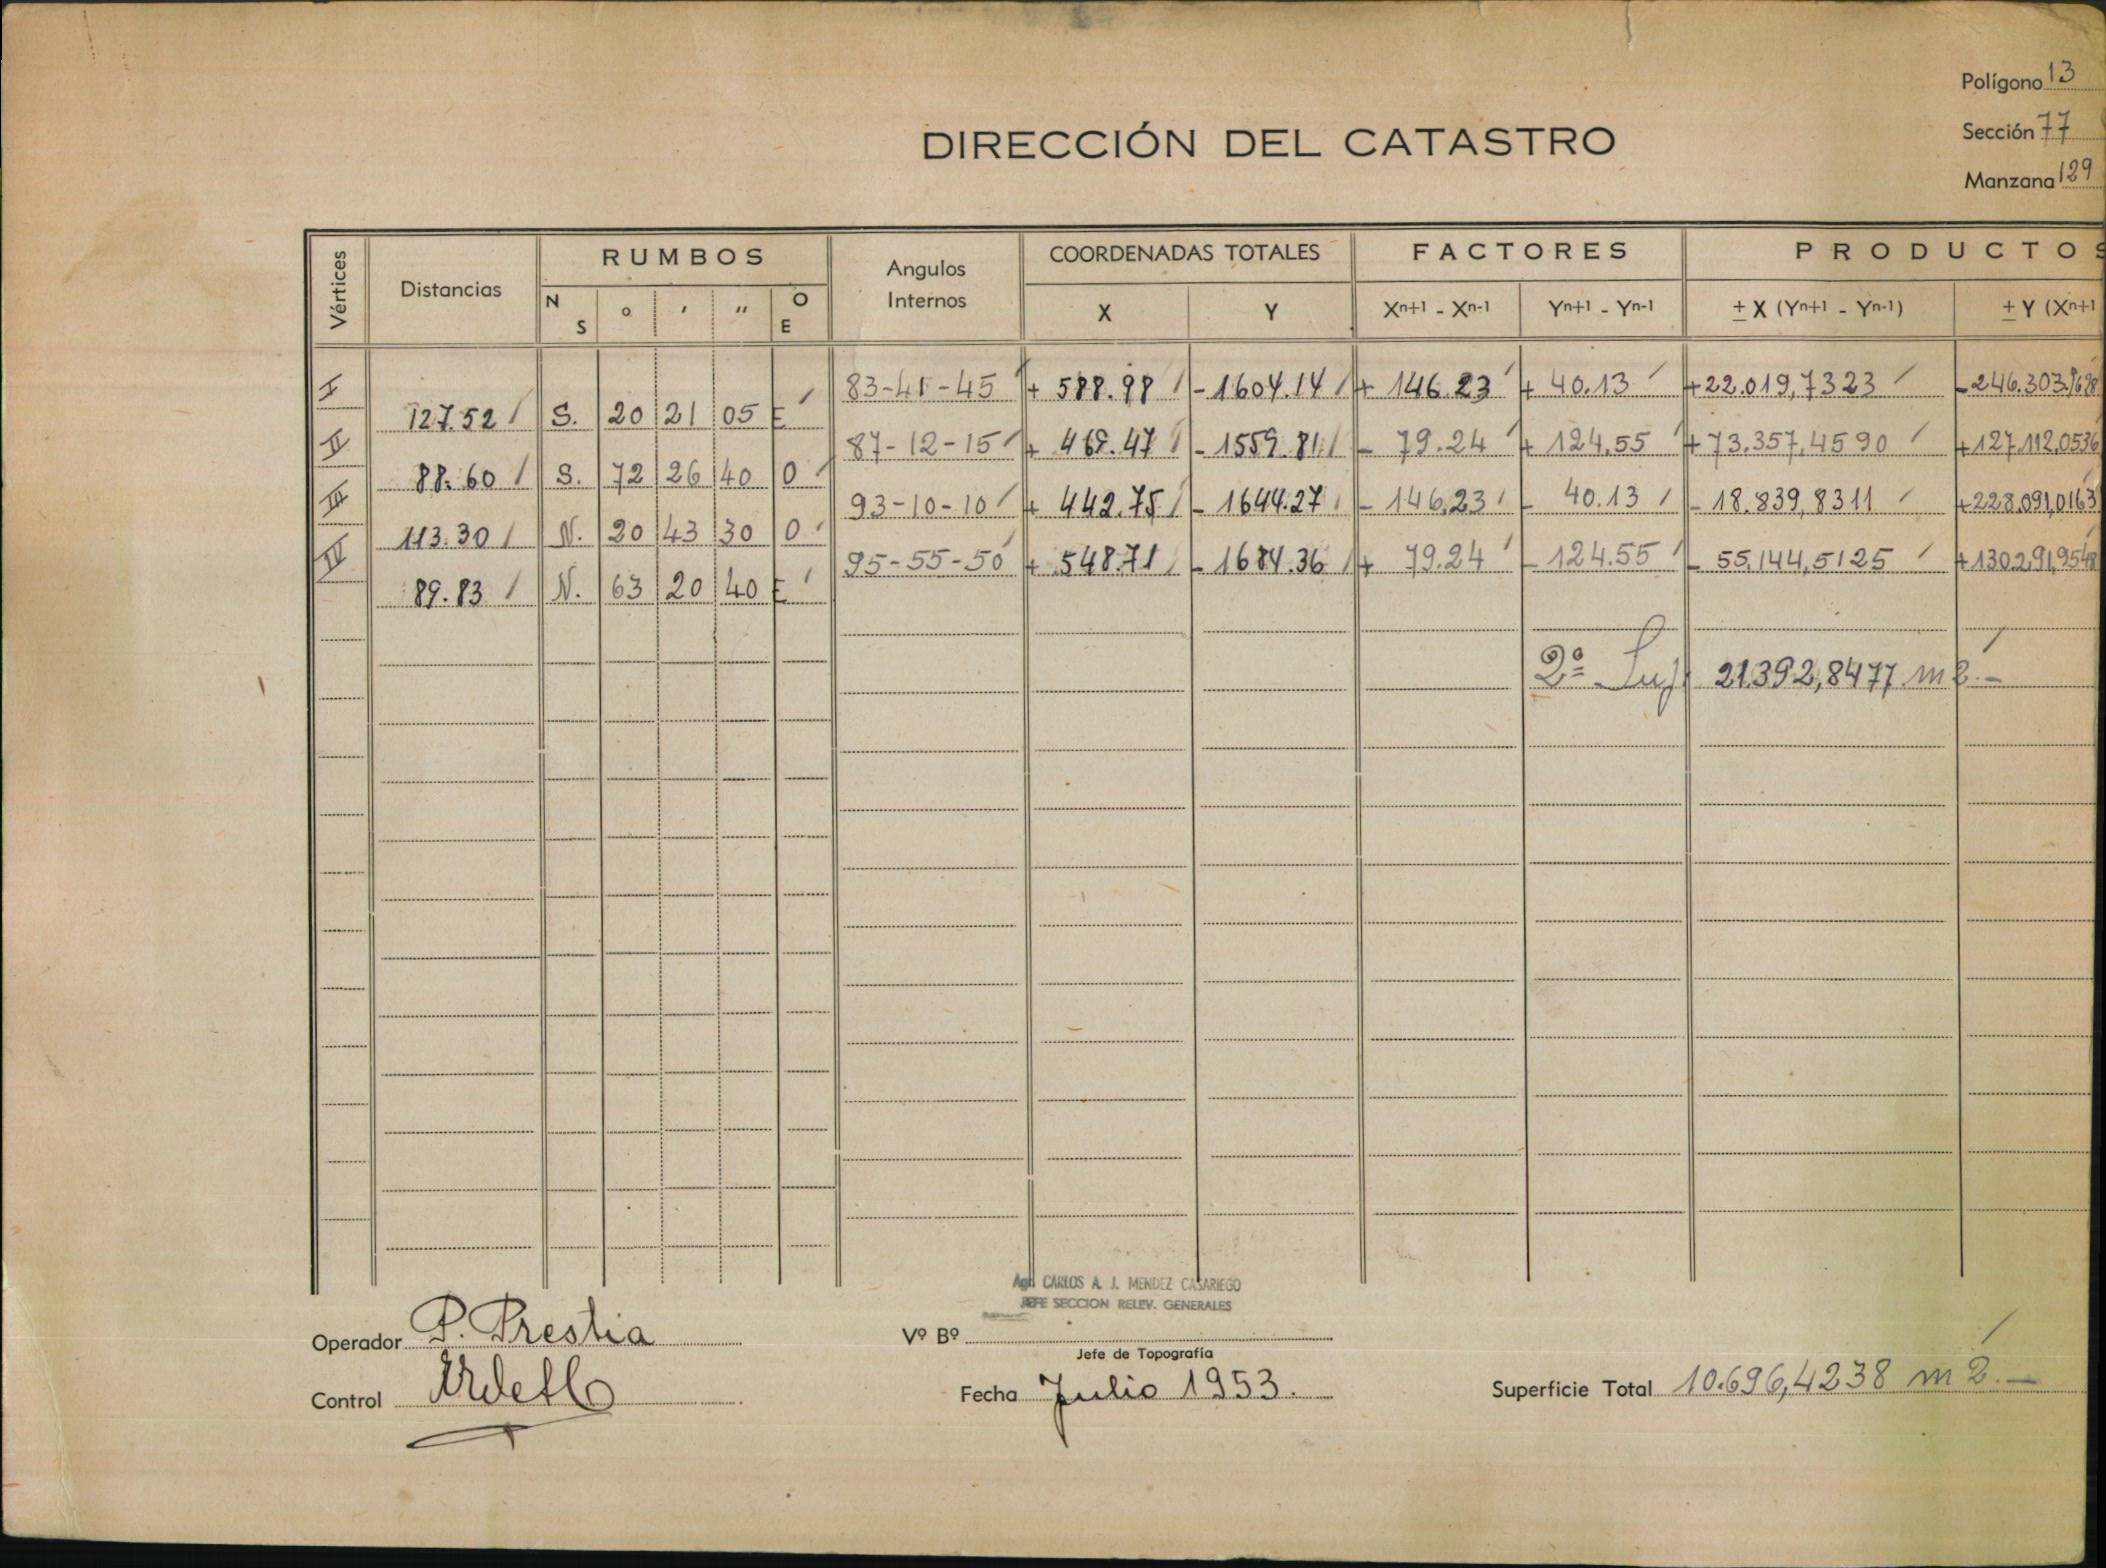 Polígono 13
DIRECCIÓN DEL CATASTRO
Sección 77
Manzana 129
Vértices Distancias RUMBOS Angulos Internos COORDENADAS TOTALES FACTORES PRODUCTOS
N S ° ′ ″ O E X Y Xn+1 - Xn-1 Yn+1 - Yn-1 ± X (Yn+1 - Yn-1) ± Y (Xn+1
I 83-41-45 + 588.98 - 1604.14 + 146.23 + 40.13 +22.019,7323 -246.303,9628
127.52 S. 20 21 05 E
II 87-12-15 + 469.47 - 1559.81 - 79.24 + 124.55 +73.357,4590 +127.112,0536
88.60 S. 72 26 40 O
III 93-10-10 + 442.75 - 1644.27 - 146.23 - 40.13 -18.839,8311 +228.091,0163
113.30 N. 20 43 30 O
IV 95-55-50 + 548.71 - 1684.36 + 79.24 - 124.55 - 55.144,5125 +130.291,9548
89.83 N. 63 20 40 E
2ª Sup. 21.392,8477 m2.-
Agr. CARLOS A. J. MENDEZ CASARIEGO
JEFE SECCION RELEV. GENERALES
Operador P. Prestia Vº Bº
Jefe de Topografía
Control Fecha Julio 1953. Superficie Total 10.696,4238 m2.-